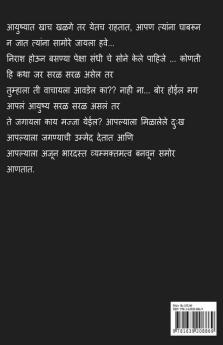 आयुष्यात खाच खळगे तर येतच राहतात, आपण त्यांना घाबरून
न जात त्यांना सामोरे जायला हवे...
निराश होऊन बसण्या पेक्षा संधी चे सोने केले पाहिजे ... कोणती
हि कथा जर सरळ सरळ असेल तर
तुम्हाला ती वाचायला आवडेल का?? नाही ना... बोर होईल मग
आपलं आयुष्य सरळ सरळ असलं तर
ते जगायला काय मज्जा येईल? आपल्याला मिळालेले दुःख
आपल्याला जगण्याची उम्मेद देतात आणि
आपल्याला अजून भारदस्त व्यक्तमत्व बनवून समोर
आणतात.